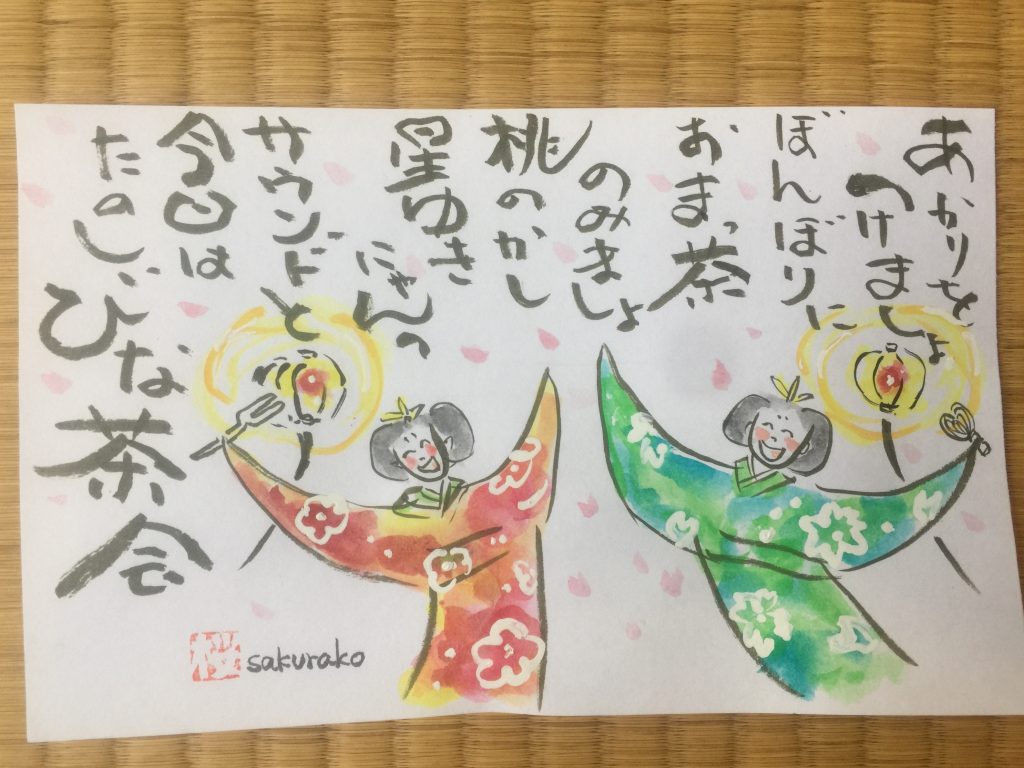 あかりを
つけましょ
ぼんぼりに
おまっ茶
のみましょ
桃のかし
星ゆき
にゃんの
サウンドと
今日は
たのしい
ひな茶会
sakurako